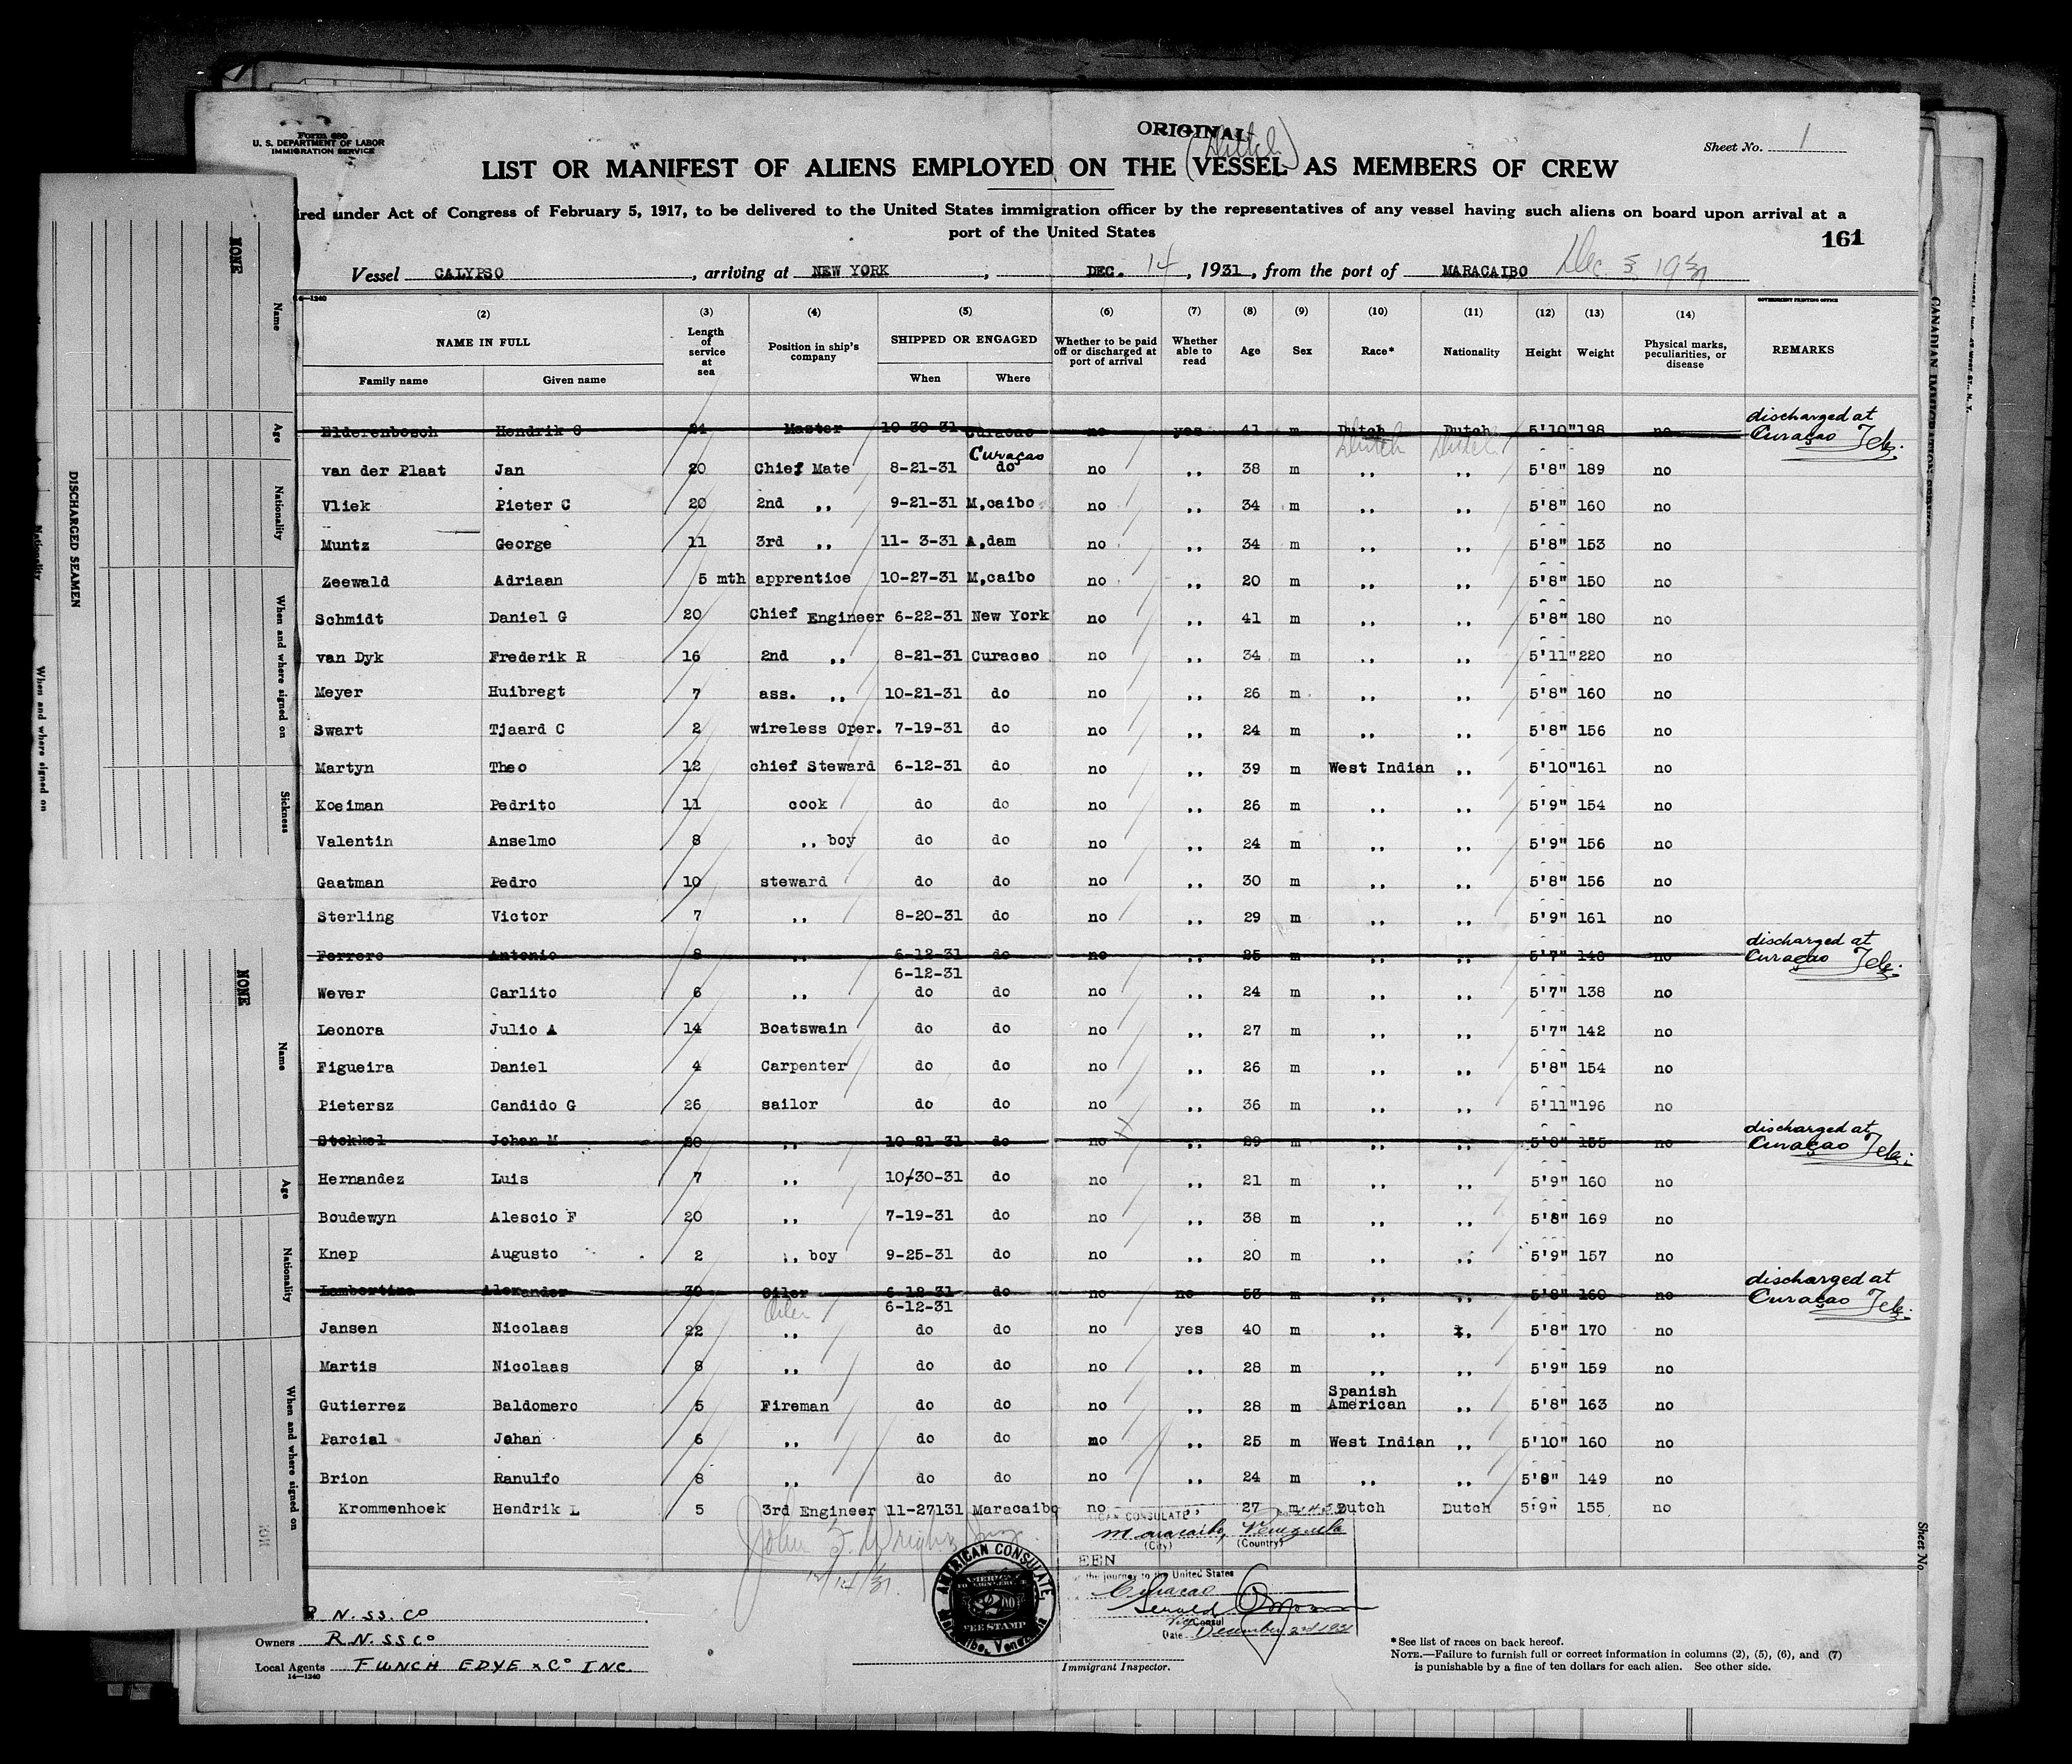 Form 680
U. S. DEPARTMENT OF LABOR
IMMIGRATION SERVICE
ORIGINAL
(Dutch)
Sheet No. 1
LIST OR MANIFEST OF ALIENS EMPLOYED ON THE VESSEL AS MEMBERS OF CREW
ired under Act of Congress of February 5, 1917, to be delivered to the United States immigration officer by the representatives of any vessel having such aliens on board upon arrival at a
port of the United States
161
Vessel CALYPSO, arriving at NEW YORK, DEC. 14, 1931, from the port of MARACAIBO Dec 3 1931
14—1240
GOVERNMENT PRINTING OFFICE
(2) (3) (4) (5) (6) (7) (8) (9) (10) (11) (12) (13) (14)
NAME IN FULL Length of service at sea Position in ship's company SHIPPED OR ENGAGED Whether to be paid off or discharged at port of arrival Whether able to read Age Sex Race* Nationality Height Weight Physical marks, peculiarities, or disease REMARKS
Family name Given name When Where
Elderenbosch Hendrik G 24 Master 10-30-31 Curacao no yes 41 m Dutch Dutch 5'10" 198 no discharged at Curaçao
Dutch Dutch
van der Plaat Jan 20 Chief Mate 8-21-31 Curaçao do no ,, 38 m ,, ,, 5'8" 189 no
Vliek Pieter C 20 2nd ,, 9-21-31 M,caibo no ,, 34 m ,, ,, 5'8" 160 no
Muntz George 11 3rd ,, 11- 3-31 A,dam no ,, 34 m ,, ,, 5'8" 153 no
Zeewald Adriaan 5 mth apprentice 10-27-31 M,caibo no ,, 20 m ,, ,, 5'8" 150 no
Schmidt Daniel G 20 Chief Engineer 6-22-31 New York no ,, 41 m ,, ,, 5'8" 180 no
van Dyk Frederik R 16 2nd ,, 8-21-31 Curacao no ,, 34 m ,, ,, 5'11" 220 no
Meyer Huibregt 7 ass. ,, 10-21-31 do no ,, 26 m ,, ,, 5'8" 160 no
Swart Tjaard C 2 wireless Oper. 7-19-31 do no ,, 24 m ,, ,, 5'8" 156 no
Martyn Theo 12 chief Steward 6-12-31 do no ,, 39 m West Indian ,, 5'10" 161 no
Koeiman Pedrito 11 cook do do no ,, 26 m ,, ,, 5'9" 154 no
Valentin Anselmo 8 ,, boy do do no ,, 24 m ,, ,, 5'9" 156 no
Gaatman Pedro 10 steward do do no ,, 30 m ,, ,, 5'8" 156 no
Sterling Victor 7 ,, 8-20-31 do no ,, 29 m ,, ,, 5'9" 161 no
Ferrero Antonio 8 ,, 6-12-31 do no ,, 25 m ,, ,, 5'7" 148 no discharged at Curaçao
6-12-31
Wever Carlito 6 ,, do do no ,, 24 m ,, ,, 5'7" 138 no
Leonora Julio A 14 Boatswain do do no ,, 27 m ,, ,, 5'7" 142 no
Figueira Daniel 4 Carpenter do do no ,, 26 m ,, ,, 5'8" 154 no
Pietersz Candido G 26 sailor do do no ,, 36 m ,, ,, 5'11" 196 no
Stekkel Johan M 20 ,, 10-21-31 do no ,, 29 m ,, ,, 5'8" 155 no discharged at Curaçao
Hernandez Luis 7 ,, 10/30-31 do no ,, 21 m ,, ,, 5'9" 160 no
Boudewyn Alescio F 20 ,, 7-19-31 do no ,, 38 m ,, ,, 5'8" 169 no
Knep Augusto 2 ,, boy 9-25-31 do no ,, 20 m ,, ,, 5'9" 157 no
Lambertina Alexander 30 Oiler 6-12-31 do no no 53 m ,, ,, 5'8" 160 no discharged at Curaçao
Oiler 6-12-31
Jansen Nicolaas 22 ,, do do no yes 40 m ,, ,, 5'8" 170 no
Martis Nicolaas 8 ,, do do no ,, 28 m ,, ,, 5'9" 159 no
Gutierrez Baldomero 5 Fireman do do no ,, 28 m Spanish American ,, 5'8" 163 no
Parcial Johan 6 ,, do do no ,, 25 m West Indian ,, 5'10" 160 no
Brion Ranulfo 8 ,, do do no ,, 24 m ,, ,, 5'8" 149 no
Krommenhoek Hendrik L 5 3rd Engineer 11-27131 Maracaibo no ,, 27 m Dutch Dutch 5'9" 155 no
John F. Wright
12/14/31
CAN CONSULATE
Maracaibo, Venezuela
(City) (Country)
EEN
the journey to the United States
Curacao
Gerald
Vice Consul
Date December 2nd 1931
AMERICAN CONSULATE
Maracaibo, Venezuela
FEE STAMP
R N. SS. Co
Owners R.N. SS Co
Local Agents FUNCH EDYE & Co INC.
14—1240
Immigrant Inspector.
*See list of races on back hereof.
NOTE.—Failure to furnish full or correct information in columns (2), (5), (6), and (7)
is punishable by a fine of ten dollars for each alien. See other side.
DISCHARGED SEAMEN
NONE
Name
Age
Nationality
When and where signed on
Sickness
Nationality
When and where signed on
NONE
Name
Age
Nationality
When and where signed on
Sheet No.